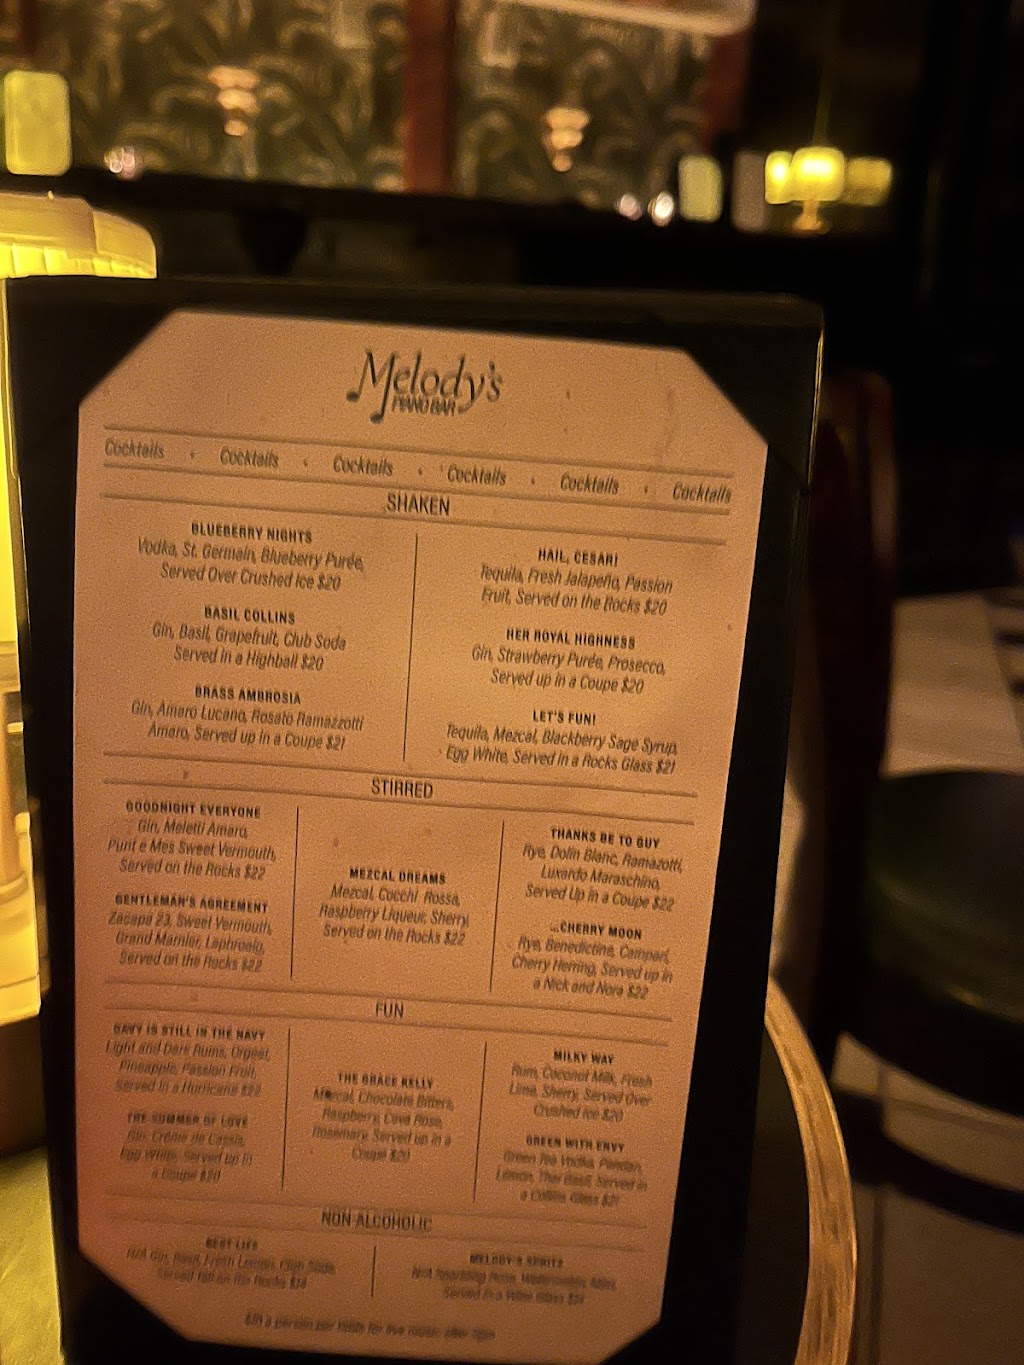 Melody's
PIANO BAR
Cocktails • Cocktails • Cocktails • Cocktails • Cocktails • Cocktails
SHAKEN
BLUEBERRY NIGHTS
Vodka, St. Germain, Blueberry Purée,
Served Over Crushed Ice $20
BASIL COLLINS
Gin, Basil, Grapefruit, Club Soda
Served in a Highball $20
BRASS AMBROSIA
Gin, Amaro Lucano, Rosato Ramazzotti
Amaro, Served up in a Coupe $21
HAIL, CESAR!
Tequila, Fresh Jalapeño, Passion
Fruit, Served on the Rocks $20
HER ROYAL HIGHNESS
Gin, Strawberry Purée, Prosecco,
Served up in a Coupe $20
LET'S FUN!
Tequila, Mezcal, Blackberry Sage Syrup,
Egg White, Served in a Rocks Glass $21
STIRRED
GOODNIGHT EVERYONE
Gin, Meletti Amaro,
Punt é Mes Sweet Vermouth,
Served on the Rocks $22
GENTLEMAN'S AGREEMENT
Zacapa 23, Sweet Vermouth,
Grand Marnier, Laphroaig,
Served on the Rocks $22
MEZCAL DREAMS
Mezcal, Cocchi Rossa,
Raspberry Liqueur, Sherry,
Served on the Rocks $22
THANKS BE TO GUY
Rye, Dolin Blanc, Ramazotti,
Luxardo Maraschino,
Served Up in a Coupe $22
...CHERRY MOON
Rye, Benedictine, Campari,
Cherry Herring, Served up in
a Nick and Nora $22
FUN
DAVY IS STILL IN THE NAVY
Light and Dark Rums, Orgeat,
Pineapple, Passion Fruit,
Served in a Hurricane $22
THE SUMMER OF LOVE
Gin, Crème de Cassis,
Egg White, Served up in
a Coupe $20
THE GRACE KELLY
Mezcal, Chocolate Bitters,
Raspberry, Cava Rose,
Rosemary, Served up in a
Coupe $20
MILKY WAY
Rum, Coconut Milk, Fresh
Lime, Sherry, Served Over
Crushed Ice $20
GREEN WITH ENVY
Green Tea Vodka, Pandan,
Lemon, Thai Basil, Served in
a Collins Glass $21
NON-ALCOHOLIC
BEST LIFE
N/A Gin, Basil, Fresh Lemon, Club Soda,
Served Tall on the Rocks $14
MELODY'S SPRITZ
N/A Sparkling Rose, Watermelon, Mint,
Served in a Wine Glass $14
a person per table for live music after